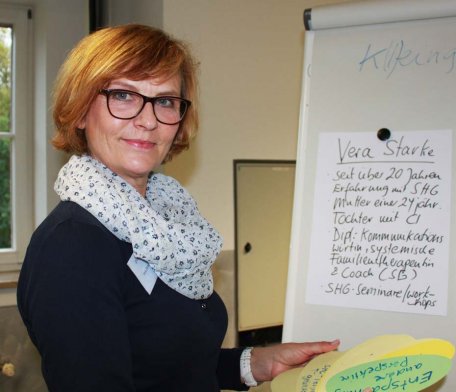 Klärung
Vera Starke
· Seit über 20 Jahren
Erfahrung mit SHG
· Mutter einer 24 jähr.
Tochter mit CI
· Dipl. Kommunikations
wirtin, systemische
Familientherapeutin
& Coach (SB)
· SHG-Seminare/work-
shops
andere
Perspektive